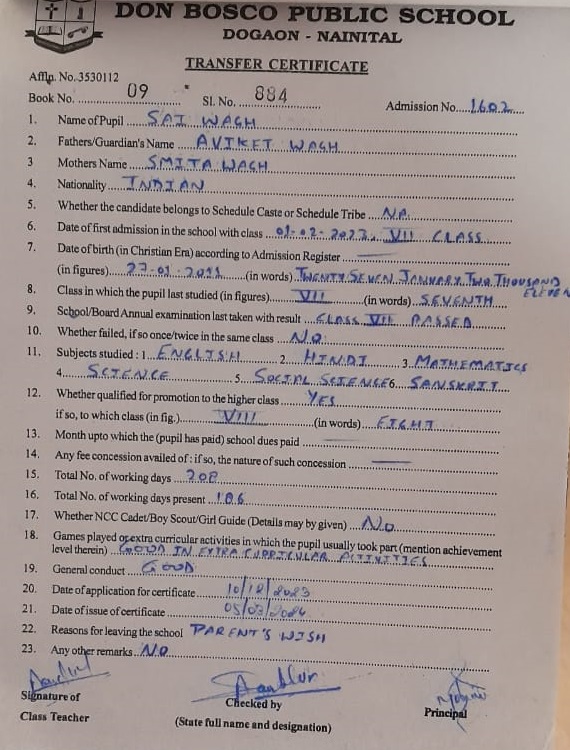 DON BOSCO PUBLIC SCHOOL
DOGAON - NAINITAL
TRANSFER CERTIFICATE
Afflp. No.3530112
Book No. 09 Sl. No. 884 Admission No. 1602
1. Name of Pupil SAI WAGH
2. Fathers/Guardian's Name AVIKET WAGH
3 Mothers Name SMITA WAGH
4. Nationality INDIAN
5. Whether the candidate belongs to Schedule Caste or Schedule Tribe N.A.
6. Date of first admission in the school with class 01-02-2023. VII CLASS
7. Date of birth (in Christian Era) according to Admission Register
(in figures) 27-01-2011 (in words) TWENTY SEVEN JANUARY TWO THOUSAND ELEVEN
8. Class in which the pupil last studied (in figures) VII (in words) SEVENTH
9. School/Board Annual examination last taken with result CLASS VII PASSED
10. Whether failed, if so once/twice in the same class NO
11. Subjects studied : 1 ENGLISH 2. HINDI 3 MATHEMATICS
4. SCIENCE 5. SOCIAL SCIENCE 6. SANSKRIT
12. Whether qualified for promotion to the higher class YES
if so, to which class (in fig.) VIII (in words) EIGHT
13. Month upto which the (pupil has paid) school dues paid
14. Any fee concession availed of : if so, the nature of such concession
15. Total No. of working days 208
16. Total No. of working days present 186
17. Whether NCC Cadet/Boy Scout/Girl Guide (Details may by given) No
18. Games played or extra curricular activities in which the pupil usually took part (mention achievement
level therein) GOOD IN EXTRA CURRICULAR ACTIVITIES
19. General conduct GOOD
20. Date of application for certificate 10/12/2023
21. Date of issue of certificate 05/03/2024
22. Reasons for leaving the school PARENT'S WISH
23. Any other remarks NO
Signature of Class Teacher
Checked by
(State full name and designation)
Principal